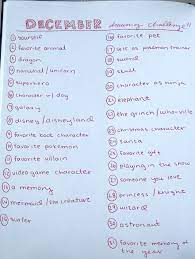 DECEMBER drawing challenge!
1 yourself
2 favorite animal
3 dragon
4 narwhal / unicorn
5 superhero
6 character w/ dog
7 galaxy
8 disney / disneyland
9 favorite book character
10 favorite pokemon
11 favorite villain
12 video game character
13 a memory
14 mermaid / sea creature
15 surfer
16 favorite pet
17 self as pokemon trainer
18 sword
19 skull
20 character as ninja
21 elephant
22 the grinch / whoville
23 christmas character
24 santa
25 favorite gift
26 playing in the snow
27 someone you love
28 princess / knight
29 wizard
30 astronaut
31 favorite memory of the year